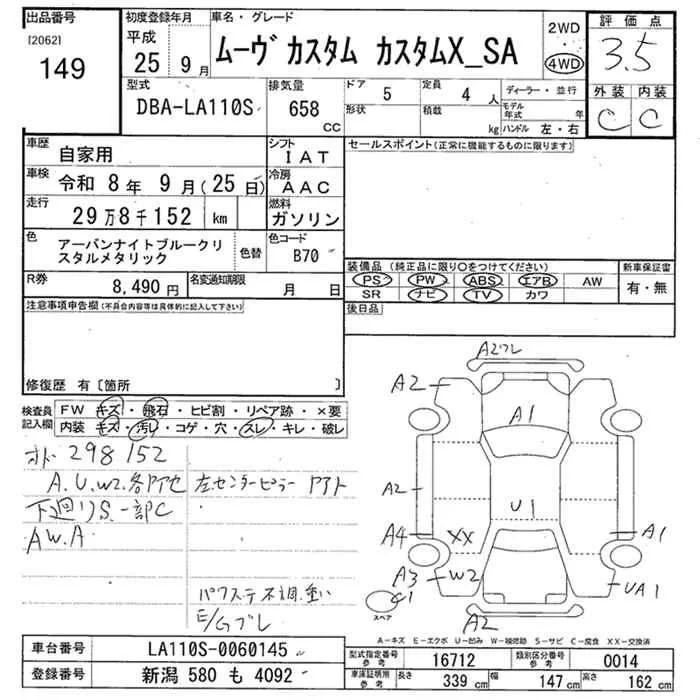 出品番号
[2062]
149
初度登録年月
平成
25 9月
車名・グレード
ムーヴ カスタム カスタムX_SA
2WD
4WD
評価点
3.5
外装 内装
C C
型式
DBA-LA110S
排気量
658
CC
ドア 5
形状
定員 4 人
積載 kg
ディーラー・並行
モデル年式 年
ハンドル 左・右
車歴 自家用
シフト IAT
車検 令和 8年 9月(25日)
冷房 AAC
走行 29万8千152 km
燃料 ガソリン
色 アーバンナイトブルークリスタルメタリック
色替
色コード B70
R券 8,490円
名変通知期限 月 日
セールスポイント(正常に機能するものに限ります)
装備品 (純正品に限り〇をつけてください)
PS PW ABS エアB AW
SR ナビ TV カワ
新車保証書
有・無
後日品
注意事項申告欄(不具合内容等は具体的に記入して下さい)
修復歴 有〔箇所 〕
検査員記入欄
FW キズ・飛石・ヒビ割・リペア跡・×要
内装 キズ・汚レ・コゲ・穴・スレ・キレ・破レ
オド 298152
A.U.W2.各所
左センターピラー
下廻りS.一部C
AW.A
パワステ不調.重い
E/Gブレ
A2ワレ
A2
A1
A2
U1
A4
XX
A1
A3
W2
UA1
C1
スペア
A2
A－キズ E－エクボ U－凹み W－補修跡 S－サビ C－腐食 XX－交換済
車台番号 LA110S-0060145
登録番号 新潟 580 も 4092
型式指定番号 参考 16712
類別区分番号 参考 0014
車庫証明用 参考 長さ 339 cm 幅 147 cm 高さ 162 cm